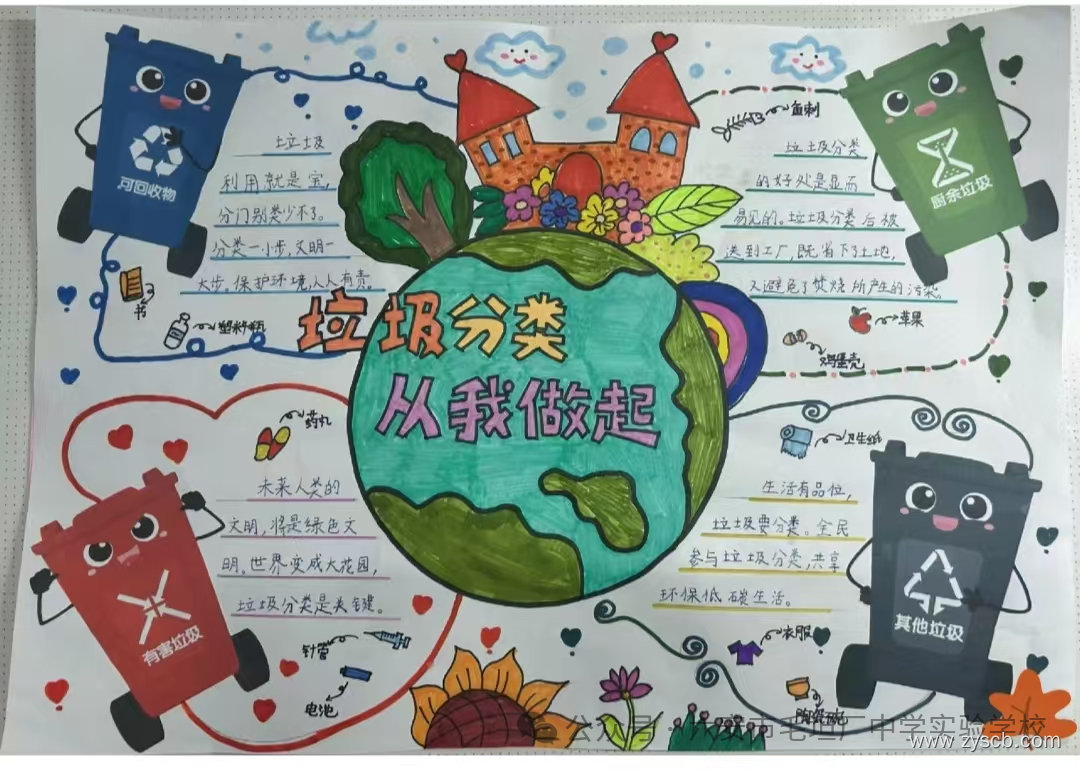 可回收物
垃圾
利用就是宝,
分门别类少不了。
分类一小步,文明一
大步。保护环境,人人有责。
书
塑料瓶
鱼刺
垃圾分类
的好处是显而
易见的。垃圾分类后被
送到工厂,既省下了土地,
又避免了焚烧所产生的污染。
苹果
鸡蛋壳
厨余垃圾
垃圾分类
从我做起
药丸
未来人类的
文明,将是绿色文
明。世界变成大花园,
垃圾分类是关键。
有害垃圾
针管
电池
卫生纸
生活有品位,
垃圾要分类。全民
参与垃圾分类,共享
环保低碳生活。
其他垃圾
衣服
陶瓷碗
公众号
毛坦厂中学实验学校
www.zyscb.com